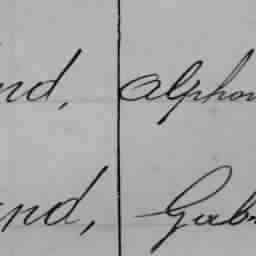 nd, Alphon
and, Gab